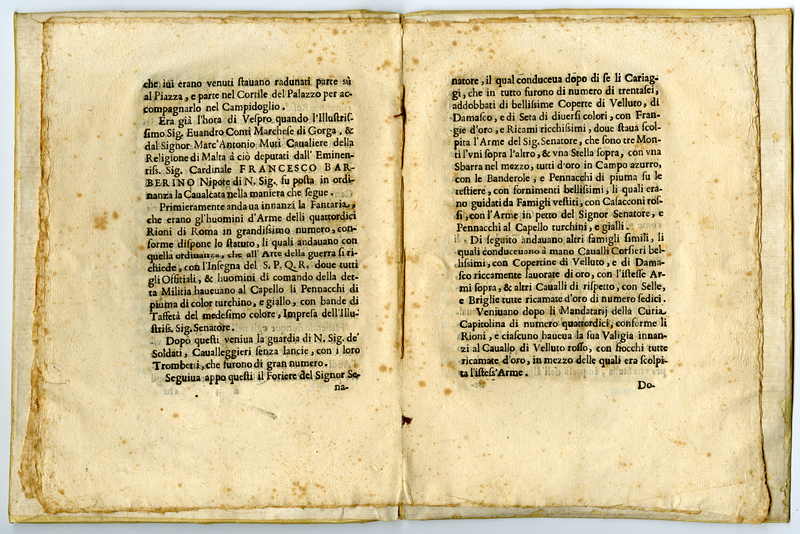 che iui erano venuti ſtauano radunati parte sù
al Piazza, e parte nel Cortile del Palazzo per ac-
compagnarlo nel Campidoglio.
Era già l'hora di Veſpro quando l'Illuſtriſ-
ſimo Sig. Euandro Conti Marcheſe di Gorga, &
dal Signor Marc'Antonio Muti Caualiere della
Religione di Malta à ciò deputati dall'Eminen-
tiſs. Sig. Cardinale FRANCESCO BAR-
BERINO Nipote di N. Sig. fu poſta in ordi-
nanza la Caualcata nella maniera che ſegue.
Primieramente andaua innanzi la Fantaria,
che erano gl'huomini d'Arme delli quattordici
Rioni di Roma in grandiſſimo numero, con-
forme diſpone lo ſtatuto, li quali andauano con
quella ordinanza, che all'Arte della guerra ſi ri-
chiede, con l'Inſegna del S. P. Q. R. doue tutti
gli Offitiali, & huomini di comando della det-
ta Militia haueuano al Capello li Pennacchi di
piuma di color turchino, e giallo, con bande di
Taffetà del medeſimo colore, Impreſa dell'Illu-
ſtriſs. Sig. Senatore.
Dopò queſti veniua la guardia di N. Sig. de'
Soldati, Caualleggieri ſenza lancie, con i loro
Trombetti, che furono di gran numero.
Seguiua appo queſti il Foriere del Signor Se-
na-
natore, il qual conduceua dopo di ſe li Cariag-
gi, che in tutto furono di numero di trentaſei,
addobbati di belliſſime Coperte di Velluto, di
Damaſco, e di Seta di diuerſi colori, con Fran-
gie d'oro, e Ricami ricchiſſimi, doue ſtaua ſcol-
pita l'Arme del Sig. Senatore, che ſono tre Mon-
ti l'vni ſopra l'altro, & vna Stella ſopra, con vna
Sbarra nel mezzo, tutti d'oro in Campo azurro,
con le Banderole, e Pennacchi di piuma ſu le
teſtiere, con fornimenti belliſſimi, li quali era-
no guidati da Famigli veſtiti, con Caſacconi roſ-
ſi, con l'Arme in petto del Signor Senatore, e
Pennacchi al Capello turchini, e gialli.
Di ſeguito andauano altri famigli ſimili, li
quali conduceuano à mano Caualli Corſieri bel-
liſſimi, con Copertine di Velluto, e di Dama-
ſco riccamente lauorate di oro, con l'iſteſſe Ar-
mi ſopra, & altri Caualli di riſpetto, con Selle,
e Briglie tutte ricamate d'oro di numero ſedici.
Veniuano dopo li Mandatarij della Curia
Capitolina di numero quattordici, conforme li
Rioni, e ciaſcuno haueua la ſua Valigia innan-
zi al Cauallo di Velluto roſſo, con fiocchi tutte
ricamate d'oro, in mezzo delle quali era ſcolpi-
ta l'iſteſs'Arme.
Do-